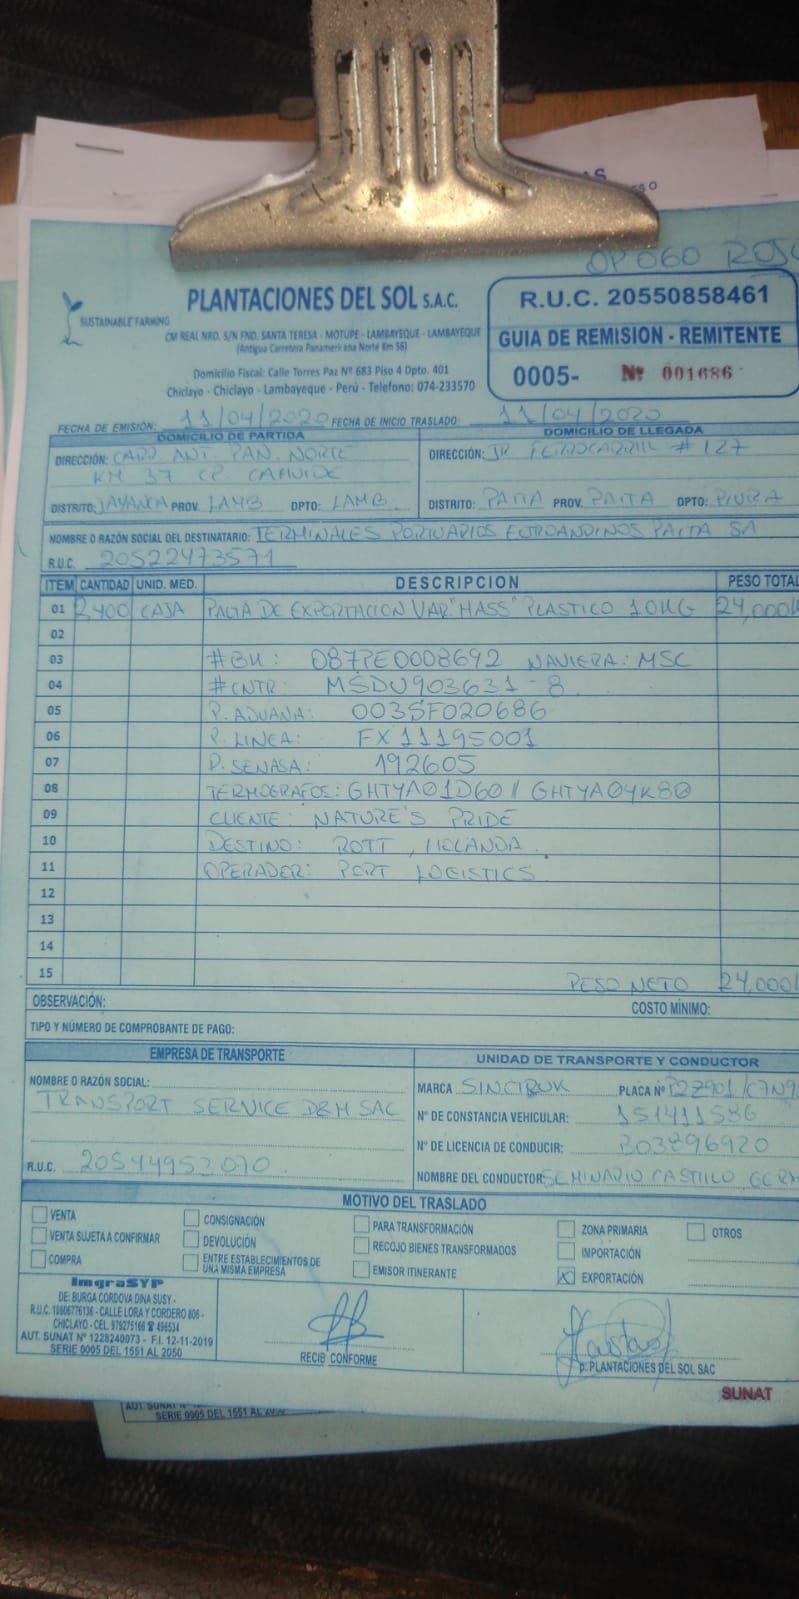 OP 060 ROJO
SUSTAINABLE FARMING
PLANTACIONES DEL SOL S.A.C.
CM REAL NRO. S/N FND. SANTA TERESA - MOTUPE - LAMBAYEQUE - LAMBAYEQUE
(Antigua Carretera Panamericana Norte Km 56)
Domicilio Fiscal: Calle Torres Paz Nº 683 Piso 4 Dpto. 401
Chiclayo - Chiclayo - Lambayeque - Perú - Telefono: 074-233570
R.U.C. 20550858461
GUIA DE REMISION - REMITENTE
0005- Nº 001686
FECHA DE EMISIÓN: 11/04/2020 FECHA DE INICIO TRASLADO: 11/04/2020
DOMICILIO DE PARTIDA
DIRECCIÓN: CARR ANT. PAN. NORTE
KM 37 CP CAHUIDE
DISTRITO: JAYANCA PROV. LAMB DPTO: LAMB.
DOMICILIO DE LLEGADA
DIRECCIÓN: JR FERROCARRIL # 127
DISTRITO: PAITA PROV. PAITA DPTO: PIURA
NOMBRE O RAZÓN SOCIAL DEL DESTINATARIO: TERMINALES PORTUARIOS EUROANDINOS PAITA SA
R.U.C. 20522473571
ITEM CANTIDAD UNID. MED. DESCRIPCION PESO TOTAL
01 2400 CAJA PALTA DE EXPORTACION VAR "HASS" PLASTICO 10KG 24,000
02
03 #BK: 087PE0008692 NAVIERA: MSC
04 #CNTR: MSDU903631-8
05 P. ADUANA: 0035F020686
06 P. LINEA: FX11195001
07 P. SENASA: 192605
08 TERMOGRAFOS: GHTYA01D60 // GHTYA04K80
09 CLIENTE: NATURE'S PRIDE
10 DESTINO: ROTT, HOLANDA.
11 OPERADOR: PORT LOGISTICS
12
13
14
15 PESO NETO 24,000
OBSERVACIÓN: COSTO MÍNIMO:
TIPO Y NÚMERO DE COMPROBANTE DE PAGO:
EMPRESA DE TRANSPORTE
NOMBRE O RAZÓN SOCIAL:
TRANSPORT SERVICE D&M SAC
R.U.C. 20544953070
UNIDAD DE TRANSPORTE Y CONDUCTOR
MARCA PLACA Nº P2Z901/C7N9
Nº DE CONSTANCIA VEHICULAR: 151411586
Nº DE LICENCIA DE CONDUCIR: B03896920
NOMBRE DEL CONDUCTOR: SEMINARIO CASTILLO
MOTIVO DEL TRASLADO
VENTA CONSIGNACIÓN PARA TRANSFORMACIÓN ZONA PRIMARIA OTROS
VENTA SUJETA A CONFIRMAR DEVOLUCIÓN RECOJO BIENES TRANSFORMADOS IMPORTACIÓN
COMPRA ENTRE ESTABLECIMIENTOS DE UNA MISMA EMPRESA EMISOR ITINERANTE X EXPORTACIÓN
ImgraSYP
DE: BURGA CORDOVA DINA SUSY -
R.U.C. 10806776136 - CALLE LORA Y CORDERO 806 -
CHICLAYO - CEL. 979275166 ☎ 496534
AUT. SUNAT Nº 1228240073 - F.I. 12-11-2019
SERIE 0005 DEL 1551 AL 2050
RECIBI CONFORME
p. PLANTACIONES DEL SOL SAC
SUNAT
SERIE 0005 DEL 1551 AL 2050